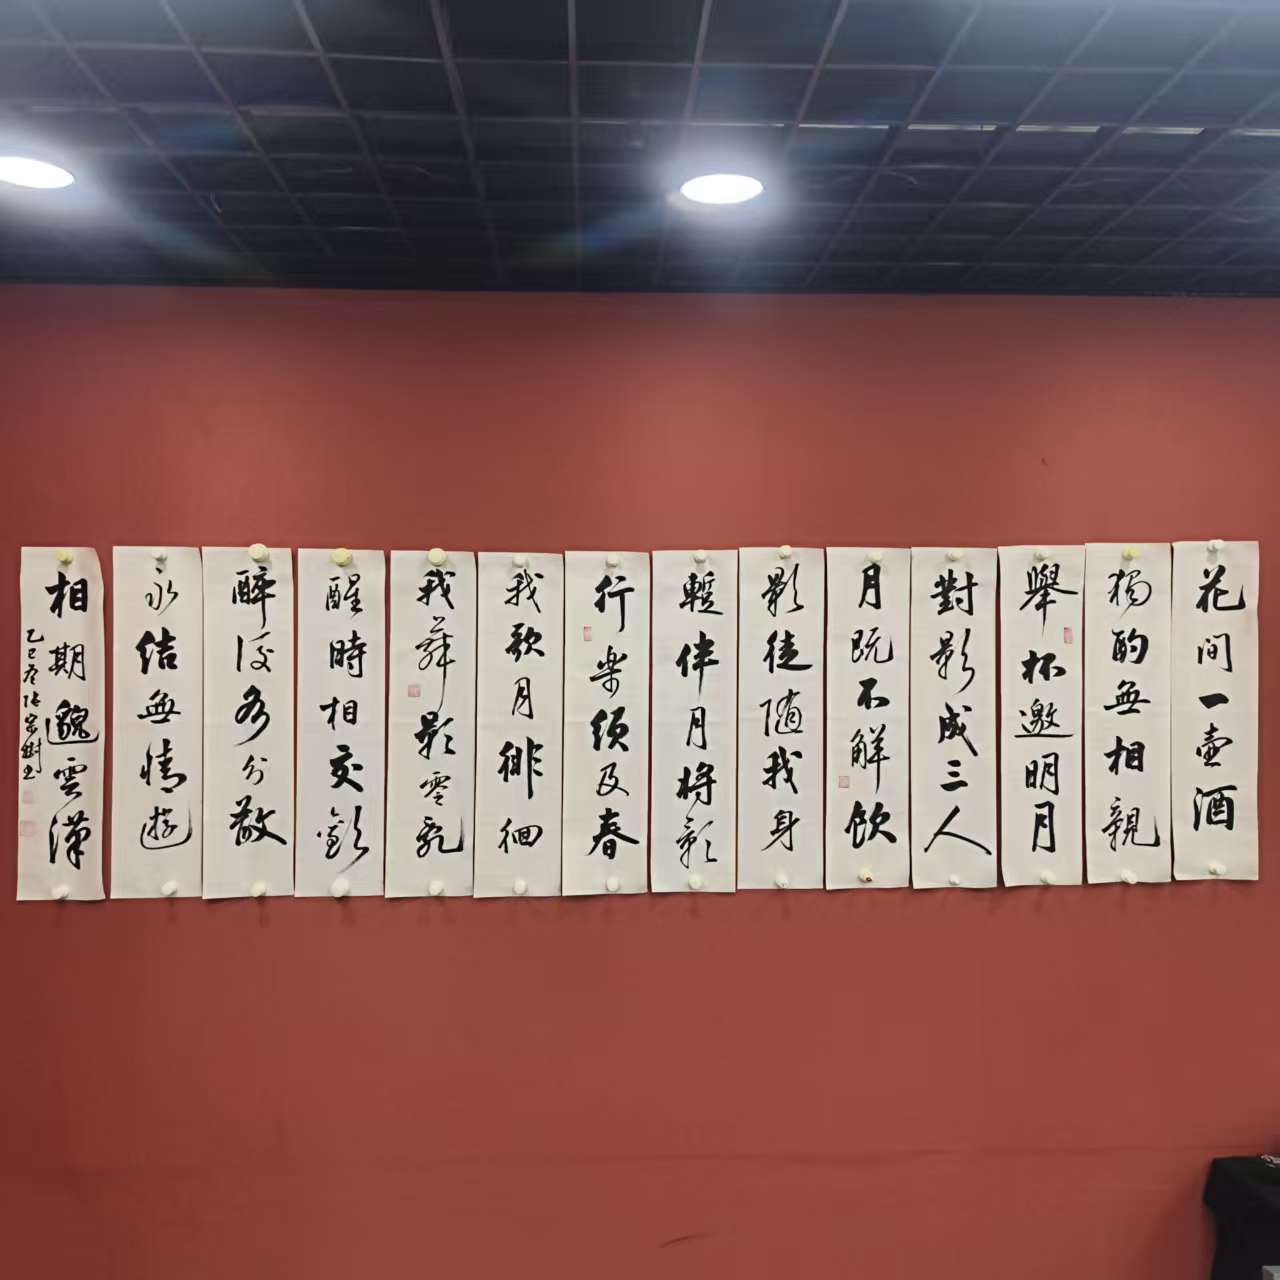 花间一壺酒
獨酌無相親
舉杯邀明月
對影成三人
月既不解飲
影徒隨我身
暫伴月將影
行樂須及春
我歌月徘徊
我舞影零亂
醒時相交歡
醉後各分散
永結無情遊
相期邈雲漢